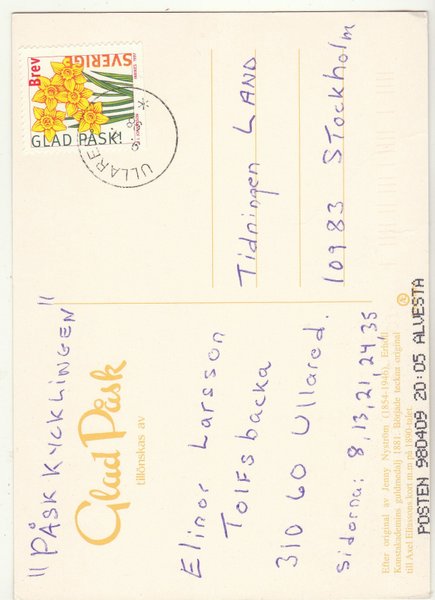 "PÅSK KYCKLINGEN"
Glad Påsk
tillönskas av
Elinor Larsson
Tolfsbacka
310 60 Ullared.
Sidorna: 8, 13, 21, 24, 35
Efter original av Jenny Nyström (1854-1946). Erhöll
Konstakademins guldmedalj 1881. Började teckna original
till Axel Eliassons kort m.m på 1890-talet.
Brev
SVERIGE
GLAD PÅSK!
ULLARED
Tidningen LAND
10983 Stockholm
POSTEN 980409 20:05 ALVESTA